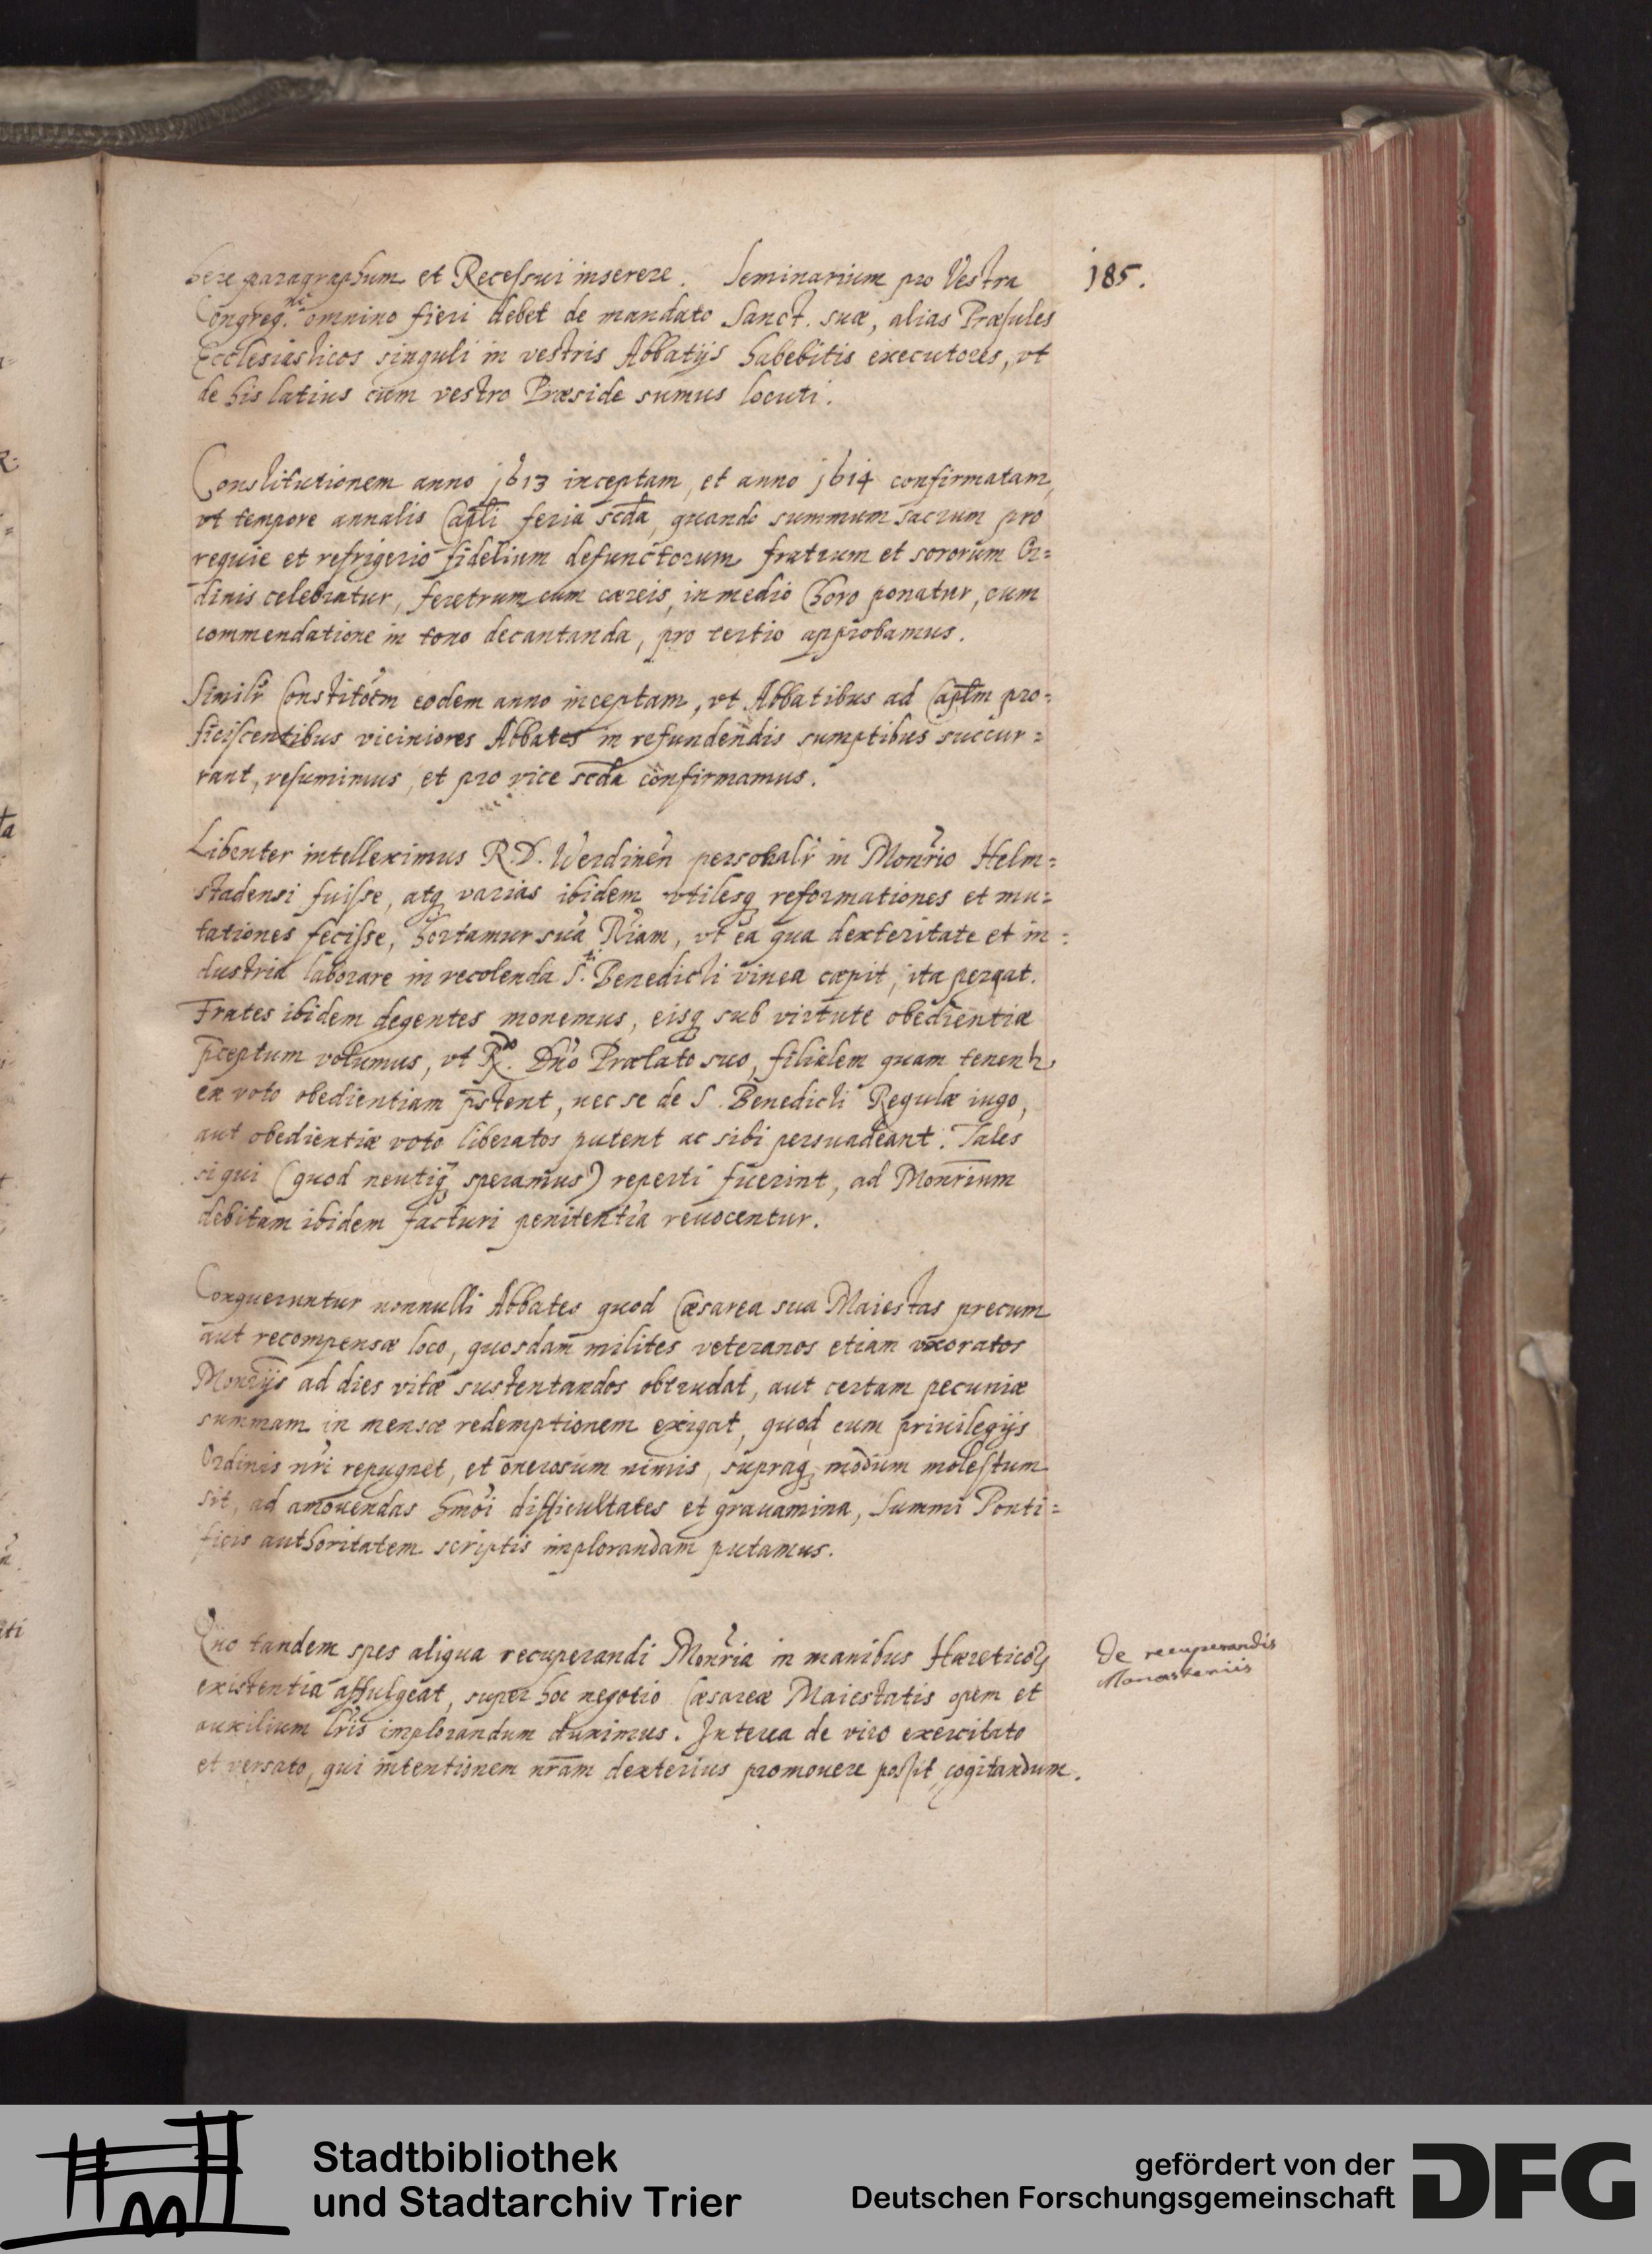 bere paragraphum et Recessui inserere. Seminarium pro Vestra
185.
Congreg.ne omnino fieri debet de mandato Sanct. suæ, alias Præsules
Ecclesiasticos singuli in vestris Abbatijs habebitis executores, vt
de his latius cum vestro Præside sumus locuti.
Constitutionem anno j613 inceptam, et anno j614 confirmatam,
vt tempore annalis Capli feria scda, quando summum sacrum pro
requie et refrigerio fidelium defunctorum fratrum et sororum Or=
dinis celebratur, feretrum cum cæreis, in medio Choro ponatur, cum
commendatione in tono decantanda, pro tertio approbamus.
Similr Constitõem eodem anno inceptam, vt Abbatibus ad Caplm pro=
ficiscentibus viciniores Abbates in refundendis sumptibus succur=
rant, resumimus, et pro vice scda confirmamus.
Libenter intelleximus R.D. Werdinen personalr in Monrio Helm=
stadensi fuisse, atq varias ibidem vtilesq reformationes et mu=
tationes fecisse, hortamur suã Rliam, vt ea qua dexteritate et in=
dustria laborare in recolenda S.ti Benedicti vinea cæpit, ita pergat.
Frates ibidem degentes monemus, eisq sub virtute obedientiæ
pceptum volumus, vt R.do Dno Prælato suo, filialem quam tenentr
ex voto obedientiam pstent, nec se de S. Benedicti Regulæ iugo,
aut obedientiæ voto liberatos putent ac sibi persuadeant. Tales
si qui (quod neutiq speramus) reperti fuerint, ad Monrium
debitam ibidem facturi penitentiã reuocentur.
Conqueruntur nonnulli Abbates quod Cæsarea sua Maiestas precum
aut recompensæ loco, quosdam milites veteranos etiam vxoratos
Monrijs ad dies vitæ sustentandos obtrudat, aut certam pecuniæ
summam in mensæ redemptionem exigat, quod cum priuilegijs
Ordinis nri repugnet, et onerosum nimis, supraq modum molestum
sit, ad amouendas hmoi difficultates et grauamina, Summi Ponti=
ficis authoritatem scriptis implorandam putamus.
Quo tandem spes aliqua recuperandi Monria in manibus Hæreticoꝝ
existentia affulgeat, super hoc negotio Cæsareæ Maiestatis opem et
auxilium lris implorandum duximus. Interea de viro exercitato
et versato, qui intentionem nram dexterius promouere possit cogitandum.
De recuperandis
Monasteriis
Stadtbibliothek
und Stadtarchiv Trier
gefördert von der
Deutschen Forschungsgemeinschaft
DFG